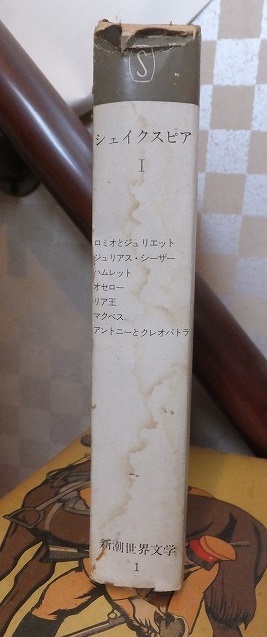 S
シェイクスピア
I
ロミオとジュリエット
ジュリアス・シーザー
ハムレット
オセロー
リア王
マクベス
アントニーとクレオパトラ
新潮世界文学
1